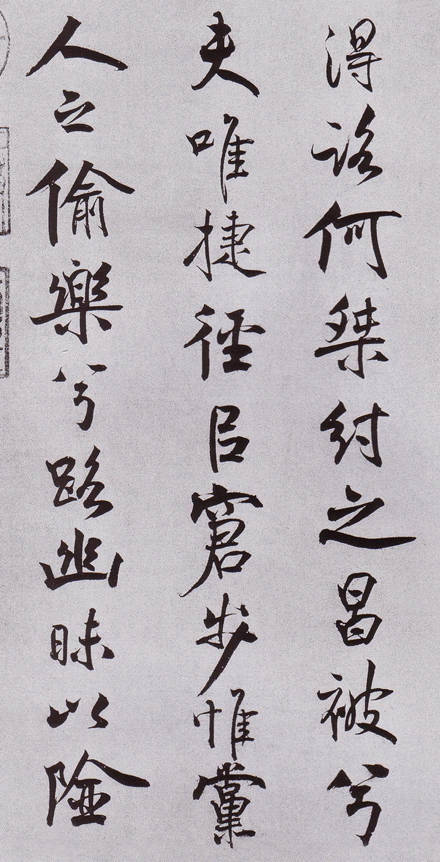 得路何桀紂之昌被兮
夫唯捷徑㠯窘步惟黨
人之偷樂兮路幽昧以險